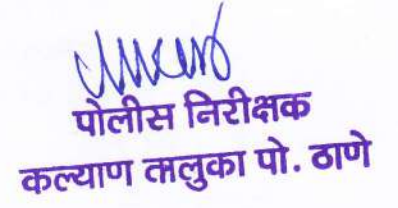 पोलीस निरीक्षक
कल्याण तालुका पो. ठाणे